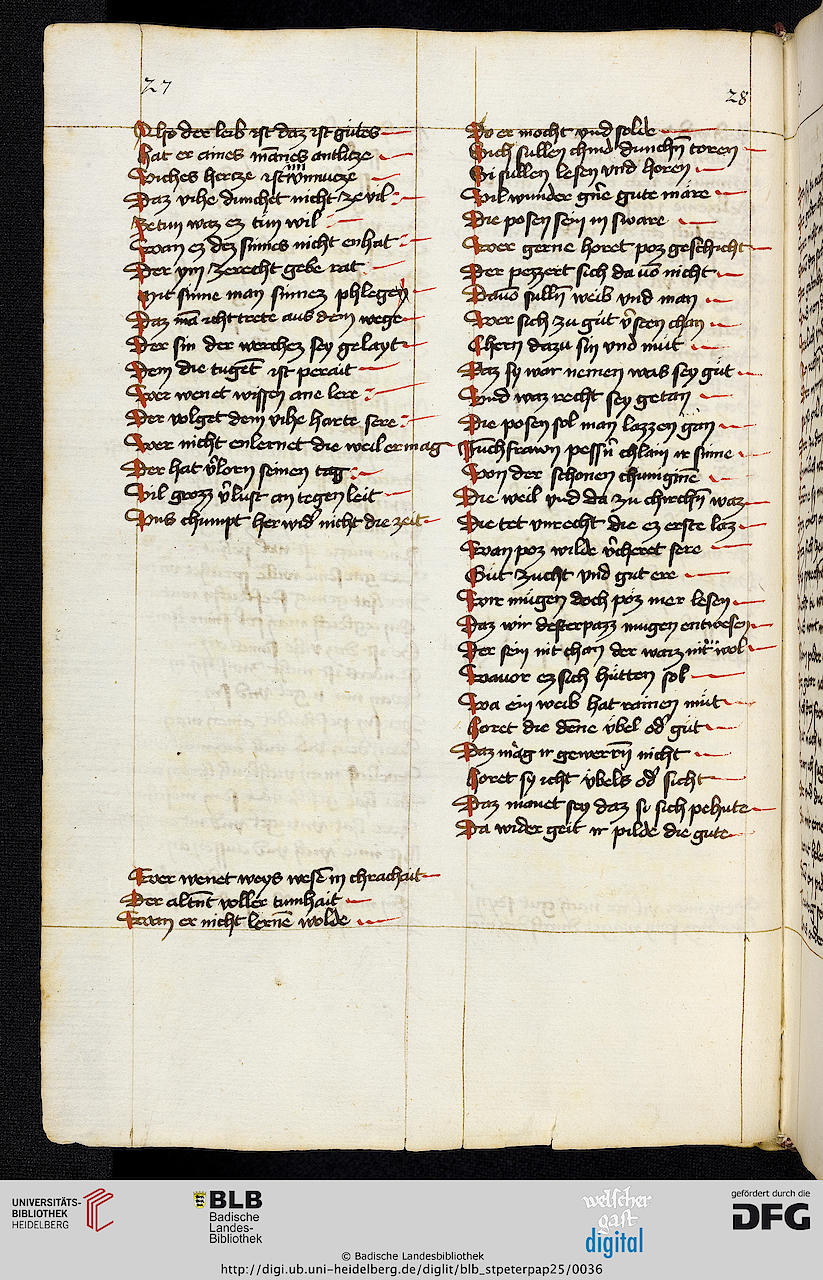 27
Also der leib ist daz ist gůtes
hat er aines mānes antlitze
Viches hertze ist vnnucze
Daz vihe dunchet nicht ze vil
Ze tun waz ez tůn wil
Wan ez dez sinnes nicht enhat
Der ym zerecht gebe rat
mit sinne man sinnez phlegen
Daz mā icht trete aus dem wege
Der sin der werchez sey gelayt
Dem die tugēt ist perait
Wer wenet wissen ane lere
Der volget dem vihe harte sere
Wer nicht enlernet die weil er mag
Der hat v̓lorn seinen tag
Vil grozz v̓lust an tegen leit
Vns chumpt her wid̓ nicht die zeit
Wer wenet weys wesē in chrachait
Der altn̄t voller tumhait
Wan er nicht lernē wolde
28
Do er mocht vnd solde
Sich sullen chind dunchn̄ toren
Si sullen lesen vnd horen
Vil wunder gn̄e gute märe
Die posen sein in sware
Wer gerne horet poz geschicht
Der pezzert sich da uō nicht
Dauō sulln̄ weib vnd man
Wer sich zu gůt v̓sten chan
Chern dazu sin vnd můt
Daz sy war nemen was sey gůt
Vnd waz recht sey getan
Die posen sol man lazzen gan
Juchfrawn pessn̄ chlain ir sinne
Von der schonen chuniginē
Die weil vnd da zu chirchn̄ waz
Die tet vnrecht die ez erste laz
Wan poz wilde v̓cheret sere
Gůt zucht vnd gut ere
Wir můgen doch poz mer lesen
Daz wir desterpazz mugen entwesen
Der sein nit chan der waiz nit wol
Wauor ez sich hůtten sol
Wa ein weib hat rainen můt
horet die dēne vbel od̓ gůt
Daz mag ir gewerrn̄ nicht
horet sy icht vbels od̓ sicht
Daz manet sey daz si sich pehute
Da wider geit ir pilde die gute
UNIVERSITÄTS-
BIBLIOTHEK
HEIDELBERG
BLB
Badische
Landes-
Bibliothek
welscher
gast
digital
gefördert durch die
DFG
© Badische Landesbibliothek
http://digi.ub.uni-heidelberg.de/diglit/blb_stpeterpap25/0036